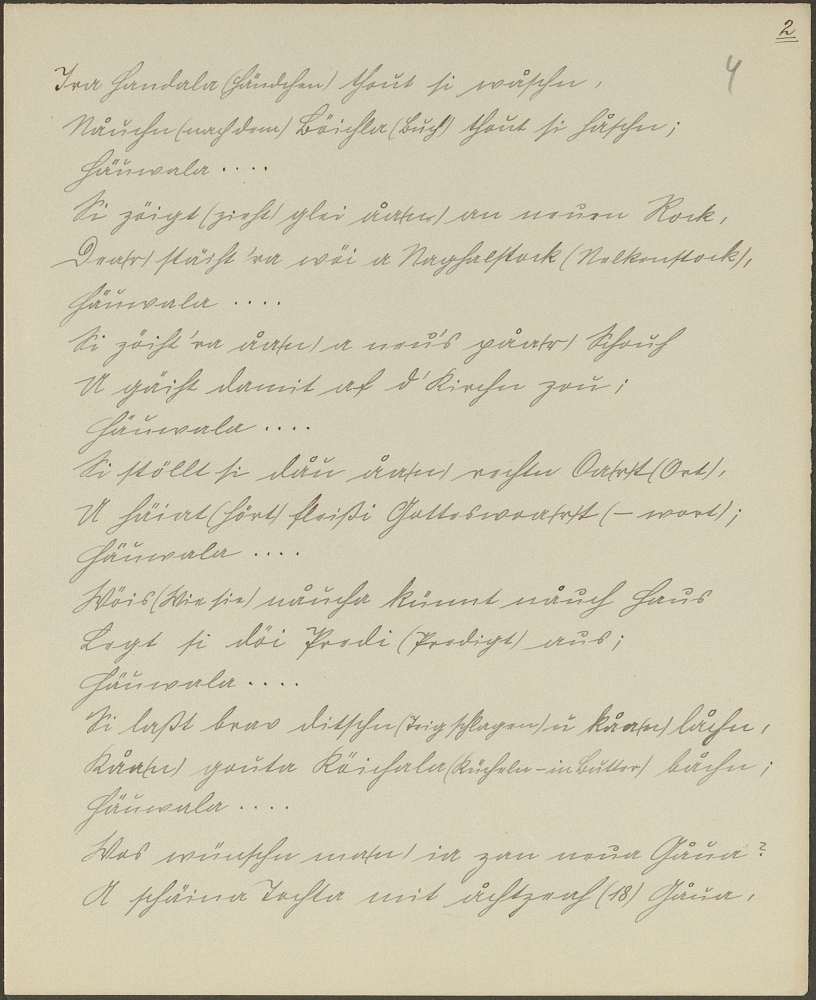 2
4
Ira Handala (Händchen) thout si wåschn,
Nåuchn (nach dem) Böichla (Buch) thout si håschn;
Häuwala ....
Si zöigt (zieht) glei åa(n) an neuen Rock,
Dea(r) stäiht 'ra wöi a Naghalstock (Nelkenstock),
Häuwala ....
Si zöiht 'ra åa(n) a neu's påa(r) Schouh
U gäiht damit af d' Kirchn zou;
Häuwala ....
Si stöllt si dåu åa(n) rechtn Oa(r)t (Ort),
U häiat (hört) fleißi Gotteswoa(r)t (– wort);
Häuwala ....
Wöis (Wie sie) nåucha künnt nåuch Haus
Legt si döi Predi (Predigt) aus;
Häuwala ....
Si laßt brav ditschn (Teig schlagen) u kåa(n) låchn,
Kåa(n) gouta Köichala (Kücheln – in Butter) båchn;
Häuwala ....
Wos wünschn ma(n) ia zan neua Gåua?
A schäina Tochta mit åchtzeah (18) Gåua,